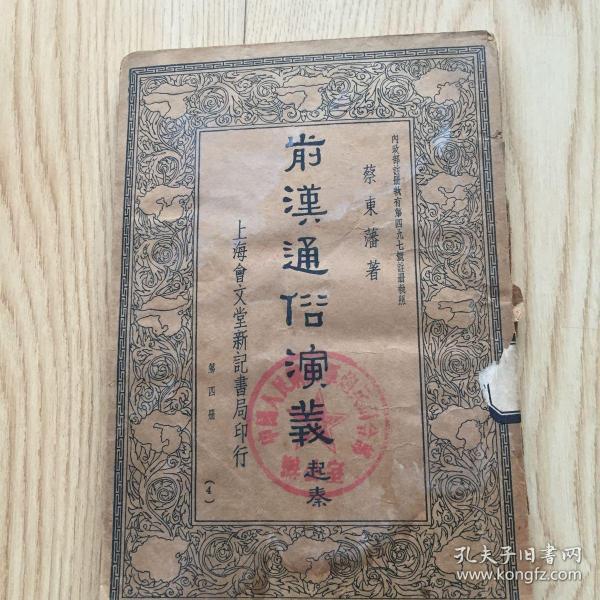 內政部註册執有第四九七號註册執照
蔡東藩著
前漢通俗演義起秦
上海會文堂新記書局印行
第四册
(4)
孔夫子旧书网
www.kongfz.com